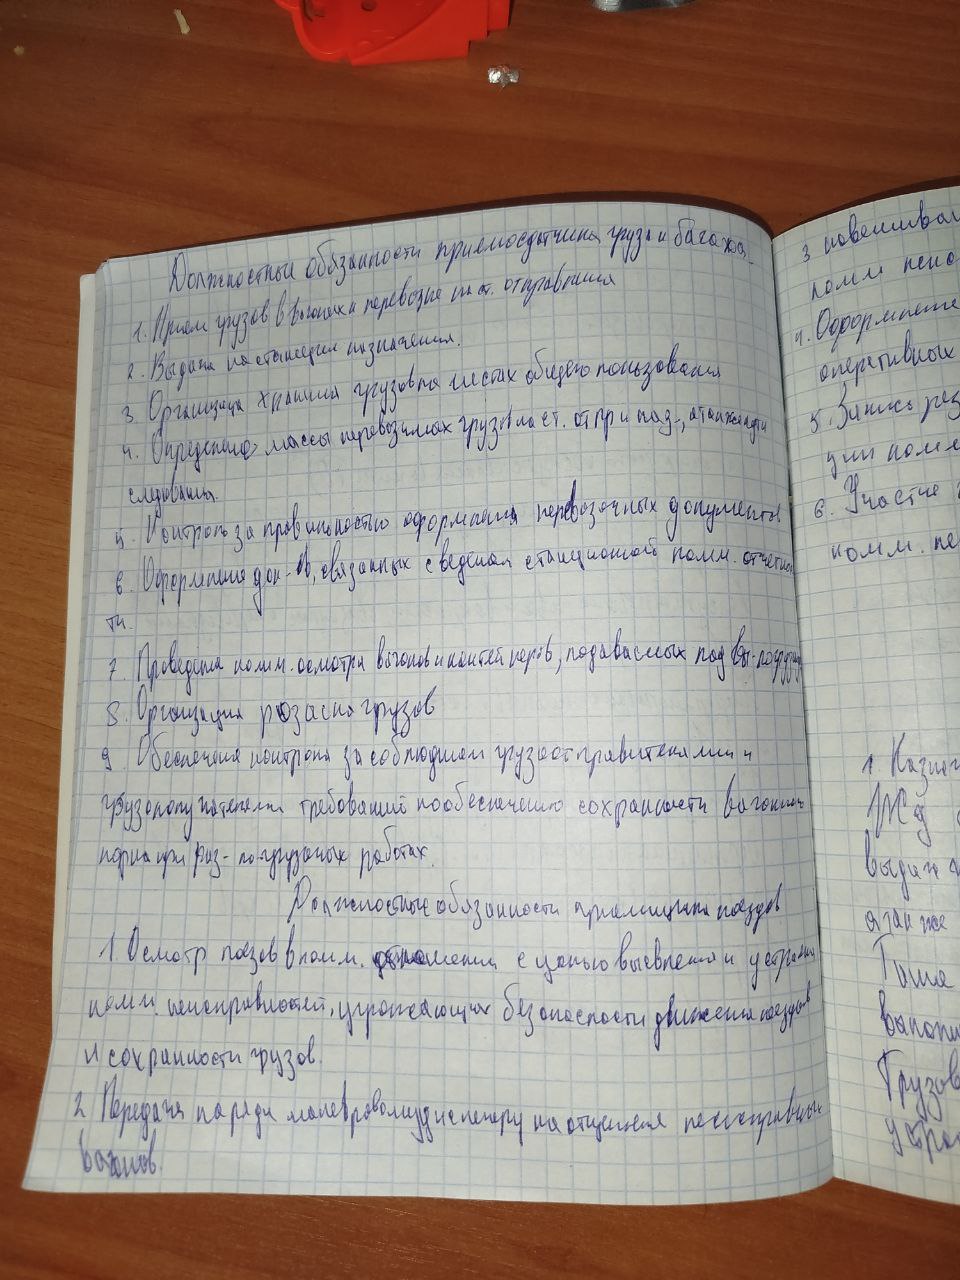 Должностные обязанности приемосдатчика груза и багажа
1. Прием грузов в вагонах к перевозке на ст. отправления
2. Выдача на станции назначения.
3. Организация хранения грузов на местах общего пользования
4. Определение массы перевозимых грузов на ст. отпр и наз-, а также пути
следования.
5. Контроль за правильностью оформления перевозочных документов
6. Оформление док-в, связанных с ведением станционной комм. отчетнос
ти.
7. Проведение комм. осмотра вагонов и контейнеров, подаваемых под вы-погрузку
8. Организация розыска грузов
9. Обеспечение контроля за соблюдением грузоотправителями и
грузополучателями требований по обеспечению сохранности вагонного
парка при раз-погрузочных работах.
Должностные обязанности приемщика поездов
1. Осмотр поездов в комм. отношении с целью выявления и устранения
комм. неисправностей, угрожающих безопасности движения поездов
и сохранности грузов.
2. Передача наряда маневровому диспетчеру на отцепления неисправных
вагонов.
3
комм
4. Оформление
оперативных
5. Запись
ции комм
6. Участие
комм. пе
1.
Жд
выдач
а также
Грузов
устра